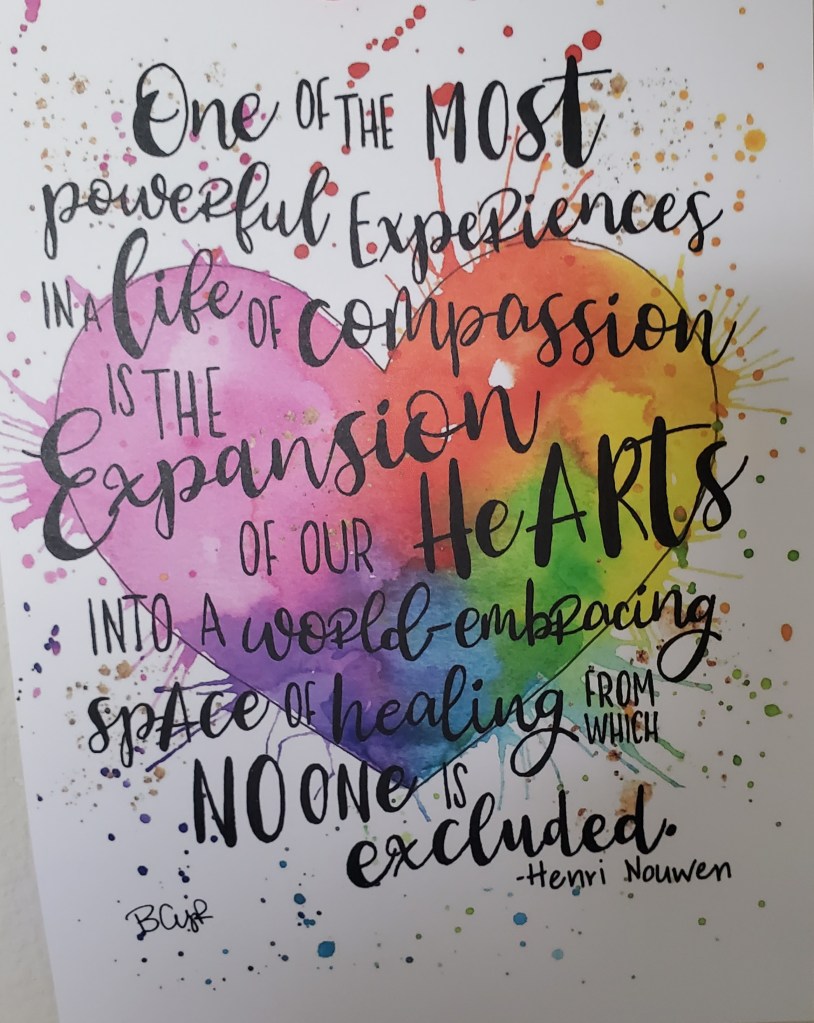 One OF THE MOST
powerful Experiences
IN A life OF compassion
IS THE
Expansion
OF OUR HeARTS
INTO A world-embracing
spAce OF healing FROM
WHICH
NO ONe IS
excluded.
-Henri Nouwen